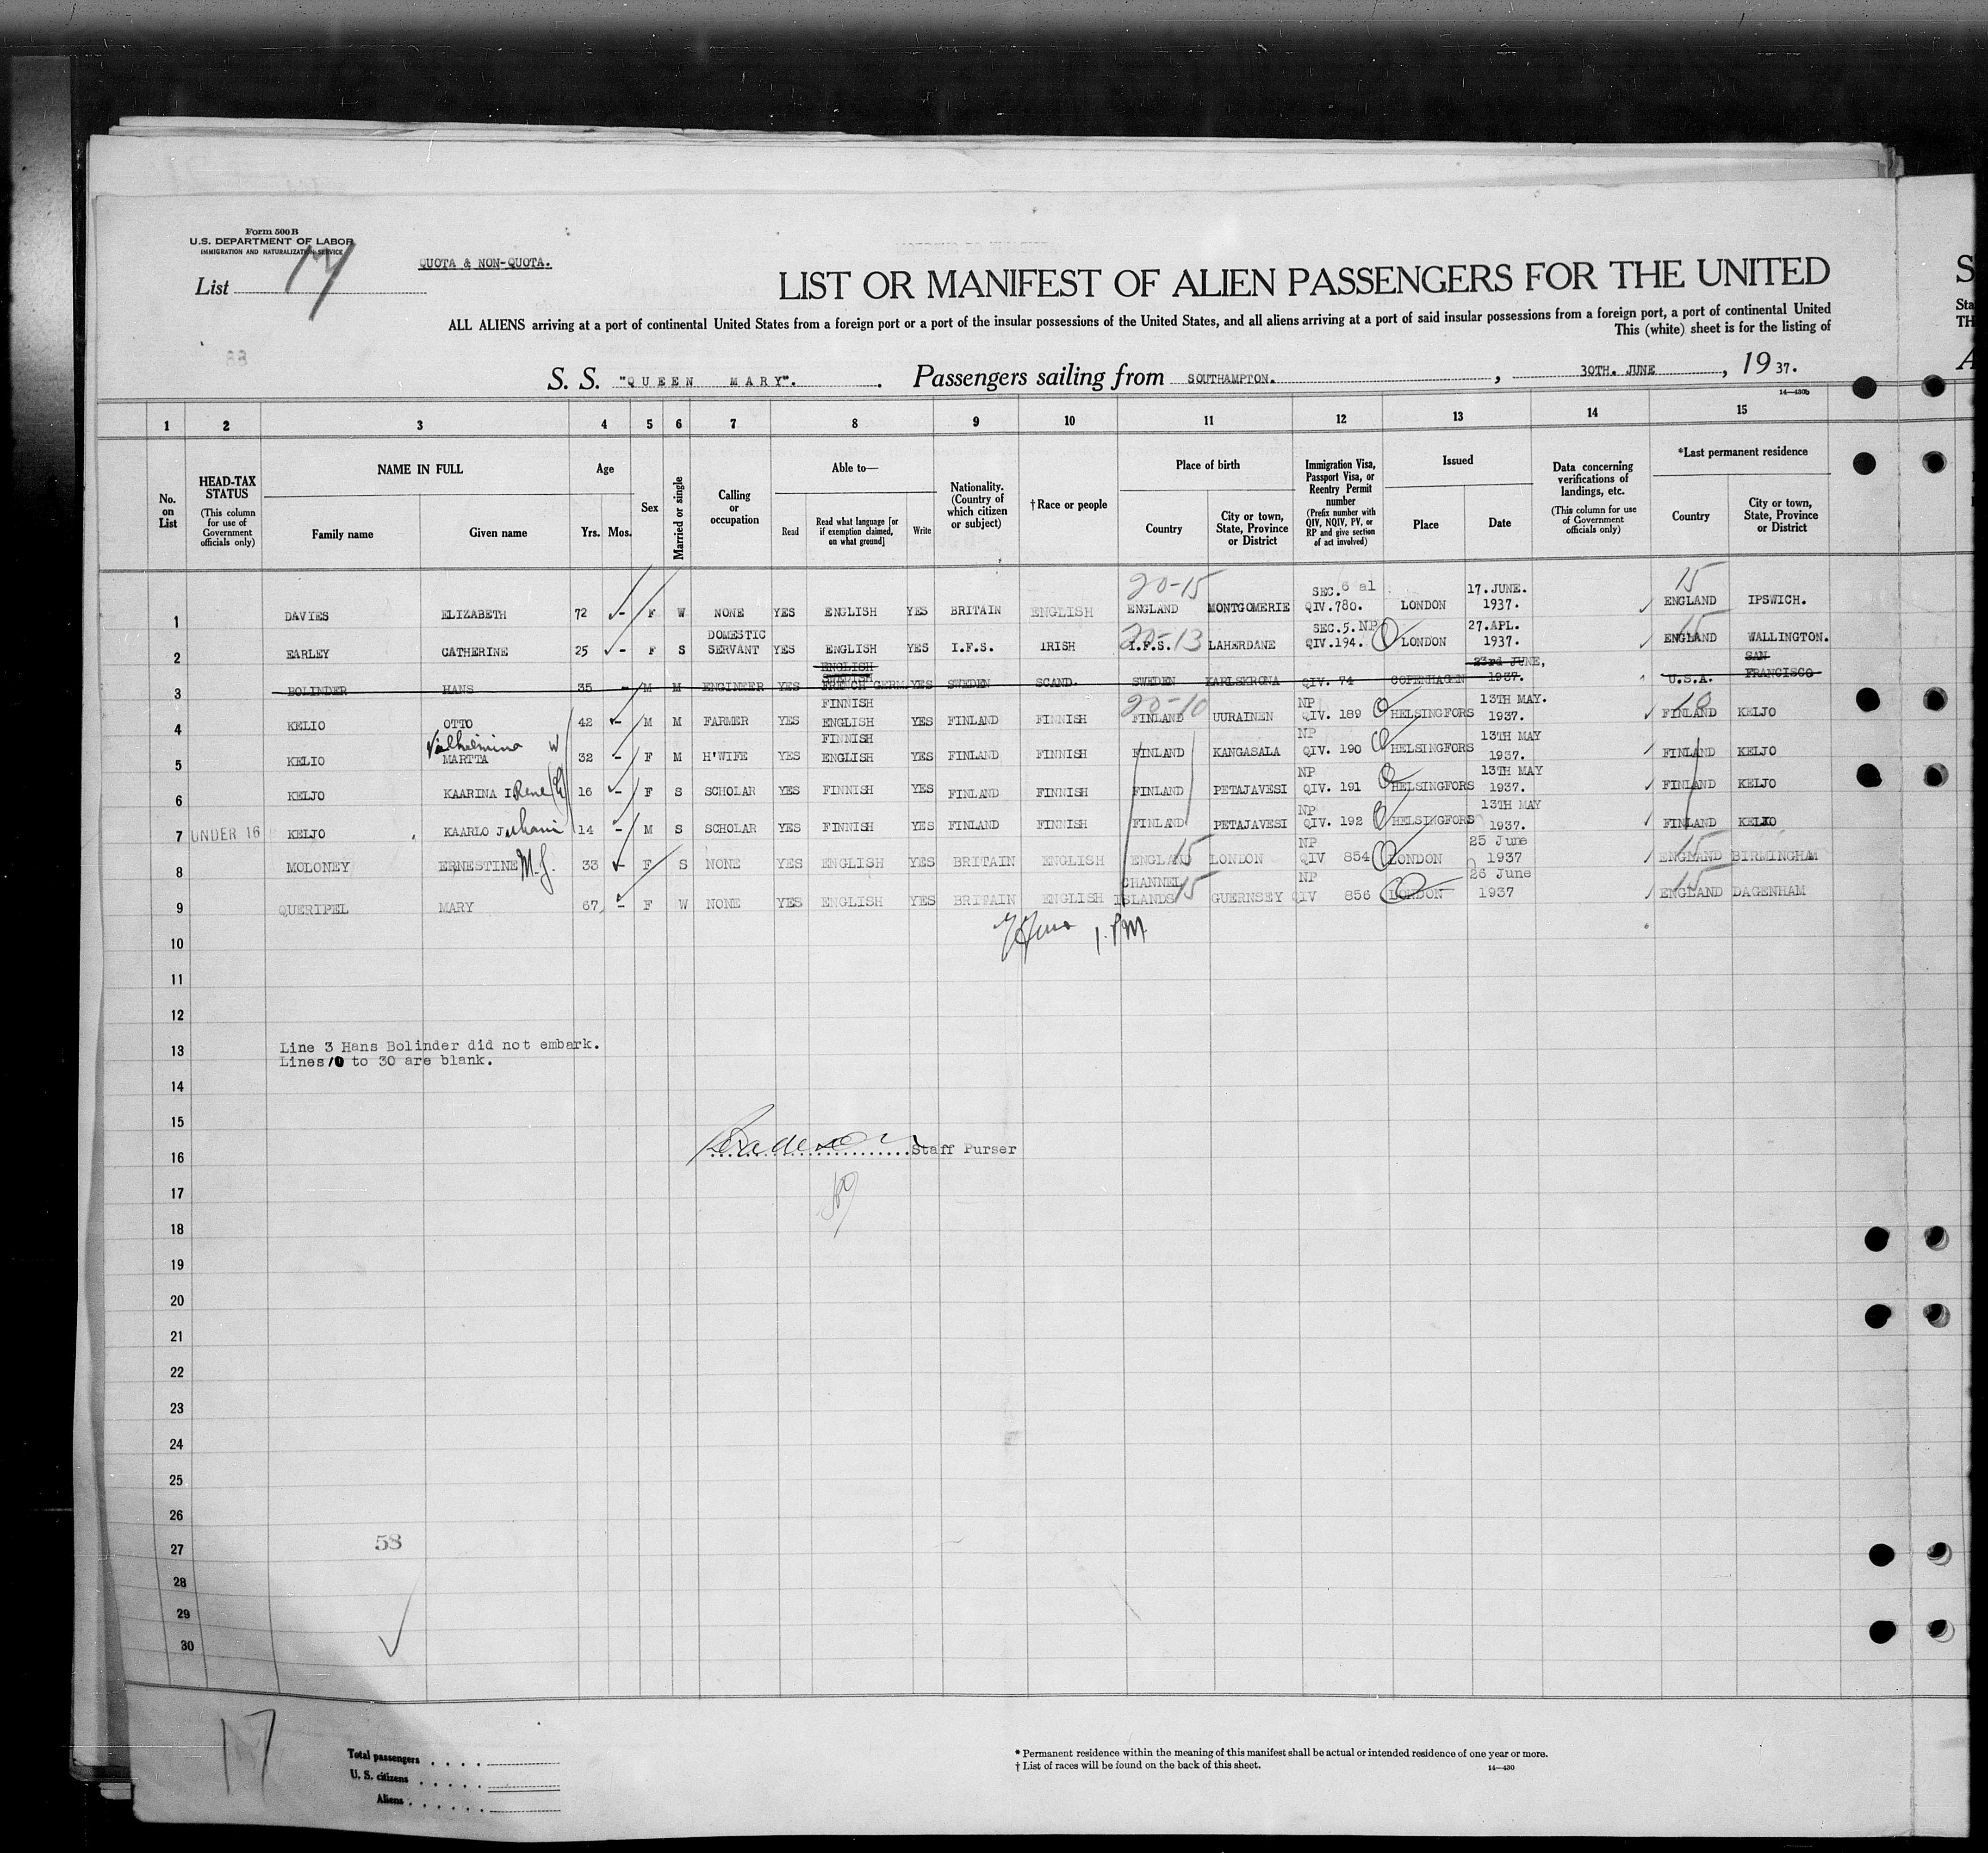 Form 500 B
U.S. DEPARTMENT OF LABOR
IMMIGRATION AND NATURALIZATION SERVICE
List 17
QUOTA & NON-QUOTA.
LIST OR MANIFEST OF ALIEN PASSENGERS FOR THE UNITED
ALL ALIENS arriving at a port of continental United States from a foreign port or a port of the insular possessions of the United States, and all aliens arriving at a port of said insular possessions from a foreign port, a port of continental United
This (white) sheet is for the listing of
S. S. "QUEEN MARY". Passengers sailing from SOUTHAMPTON. , 30TH. JUNE , 19 37.
14—430b
1 2 3 4 5 6 7 8 9 10 11 12 13 14 15
No. on List
HEAD-TAX STATUS (This column for use of Government officials only)
NAME IN FULL
Family name Given name
Age
Yrs. Mos.
Sex
Married or single
Calling or occupation
Able to—
Read
Read what language [or if exemption claimed, on what ground]
Write
Nationality. (Country of which citizen or subject)
† Race or people
Place of birth
Country
City or town, State, Province or District
Immigration Visa, Passport Visa, or Reentry Permit number (Prefix number with QIV, NQIV, PV, or RP and give section of act involved)
Issued
Place Date
Data concerning verifications of landings, etc. (This column for use of Government officials only)
*Last permanent residence
Country
City or town, State, Province or District
20-15 SEC. 6 a1 17.JUNE. 15
1 DAVIES ELIZABETH 72 - F W NONE YES ENGLISH YES BRITAIN ENGLISH ENGLAND MONTGOMERIE QIV.780. LONDON 1937. ENGLAND IPSWICH.
DOMESTIC 20-13 SEC.5. NP 27.APL. 15
2 EARLEY CATHERINE 25 - F S SERVANT YES ENGLISH YES I.F.S. IRISH I.F.S. LAHERDANE QIV.194. LONDON 1937. ENGLAND WALLINGTON.
ENGLISH SWEDISH 23rd JUNE, SAN
3 BOLINDER HANS 35 - M M ENGINEER YES FRENCH GERM. YES SWEDEN SCAND. SWEDEN KARLSKRONA QIV. 74 COPENHAGEN 1937. U.S.A. FRANCISCO
FINNISH 20-10 NP 13TH MAY. 10
4 KELIO OTTO 42 - M M FARMER YES ENGLISH YES FINLAND FINNISH FINLAND UURAINEN QIV. 189 HELSINGFORS 1937. FINLAND KELJO
Vilhelmina W FINNISH NP 13TH MAY
5 KELIO MARTTA 32 - F M H'WIFE YES ENGLISH YES FINLAND FINNISH FINLAND KANGASALA QIV. 190 HELSINGFORS 1937. FINLAND KELJO
NP 13TH MAY
6 KELJO KAARINA IRene 16 - F S SCHOLAR YES FINNISH YES FINLAND FINNISH FINLAND PETAJAVESI QIV. 191 HELSINGFORS 1937. FINLAND KELJO
NP 13TH MAY
7 UNDER 16 KELJO KAARLO Juhani 14 - M S SCHOLAR YES FINNISH YES FINLAND FINNISH FINLAND PETAJAVESI QIV. 192 HELSINGFORS 1937. FINLAND KELJO
NP 25 June
8 MOLONEY ERNESTINE M.J. 33 - F S NONE YES ENGLISH YES BRITAIN ENGLISH ENGLAND 15 LONDON QIV 854 LONDON 1937 ENGLAND 15 BIRMINGHAM
CHANNEL NP 26 June
9 QUERIPEL MARY 67 - F W NONE YES ENGLISH YES BRITAIN ENGLISH ISLANDS 15 GUERNSEY QIV 856 LONDON 1937 ENGLAND 15 DAGENHAM
10
1. P.M.
11
12
13 Line 3 Hans Bolinder did not embark.
Lines 10 to 30 are blank.
14
15
16 Staff Purser
17
18
19
20
21
22
23
24
25
26
27 58
28
29
30
17
Total passengers
U. S. citizens
Aliens
* Permanent residence within the meaning of this manifest shall be actual or intended residence of one year or more.
† List of races will be found on the back of this sheet.
14—430